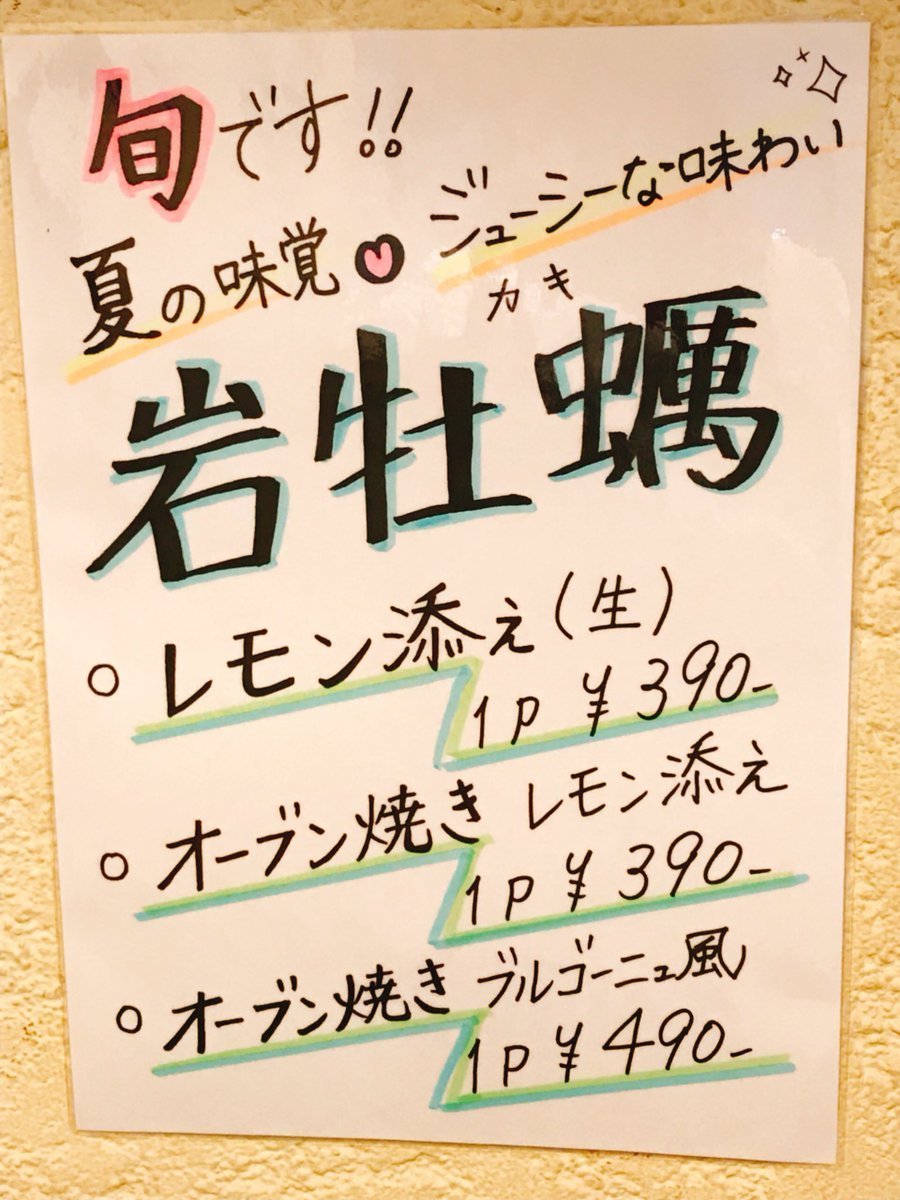 旬です!!
夏の味覚♥ジューシーな味わい
カキ
岩牡蠣
○レモン添え(生)
1P ¥390-
○オーブン焼き レモン添え
1P ¥390-
○オーブン焼き ブルゴーニュ風
1P ¥490-